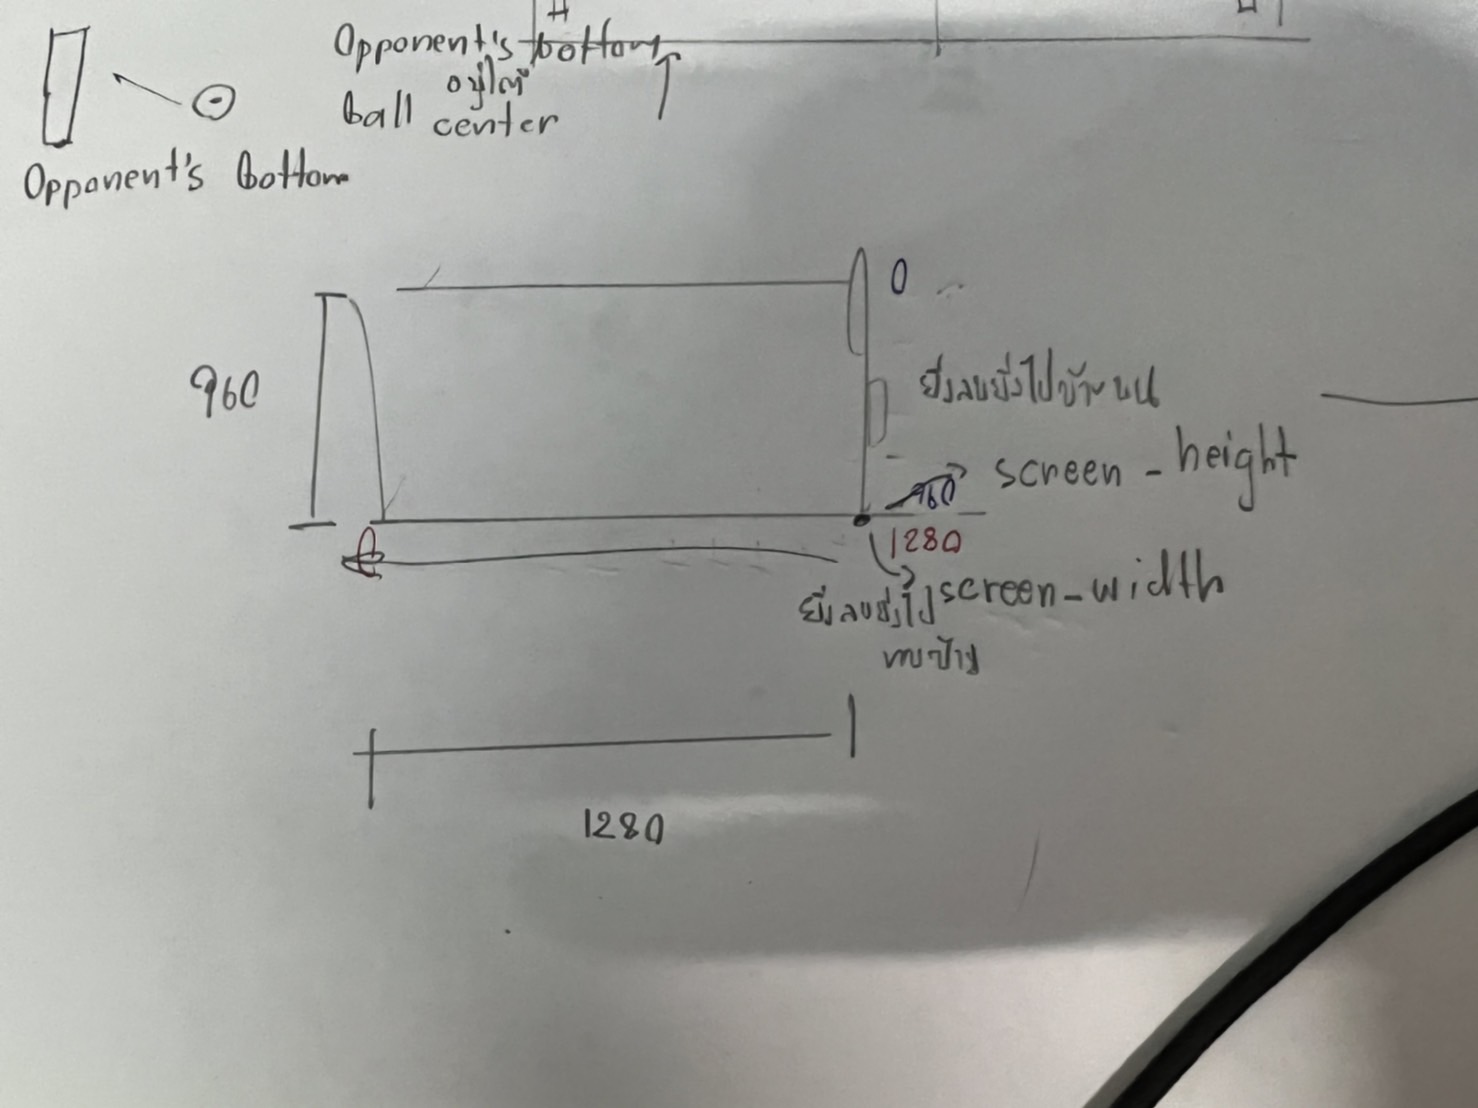 Opponent's bottom
อยู่ใต้
ball center
Opponent's bottom
0
960
ยิ่งลบยิ่งไปข้างบน
960
screen - height
1280
screen - width
ยิ่งลบยิ่งไป
ทางซ้าย
1280